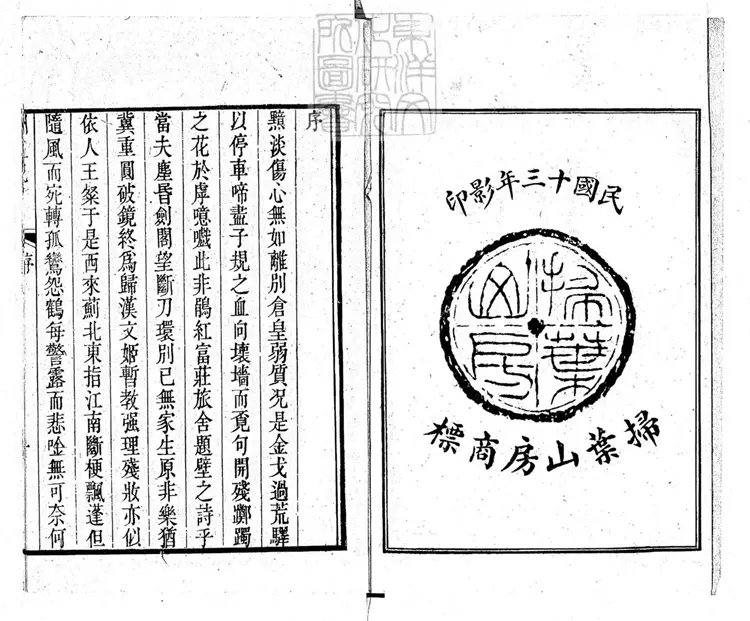 民國十三年影印
掃葉山房
掃葉山房商標
東洋文化研究所圖書
序
黯淡傷心無如離別倉皇弱質况是金戈過荒驛
以停車啼盡子規之血向壞墻而覔句開殘躑躅
之花於虖噫嚱此非鵑紅富莊旅舍題壁之詩乎
當夫塵昏劍閣望斷刀環別已無家生原非樂猶
冀重圓破鏡終爲歸漢文姬暫教强理殘妝亦似
依人王粲于是西來薊北東指江南斷梗飄蓬但
隨風而宛轉孤鸞怨鶴每警露而悲唫無可奈何
序